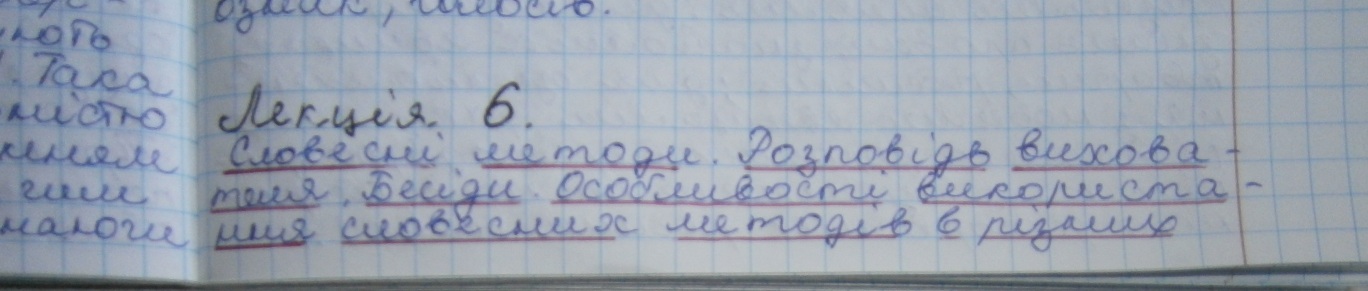 ноть
Така
містю
Лекція. 6.
Словесні методи. Розповідь вихова-
теля. Бесіди. Особливості використа-
ння словесних методів в різних